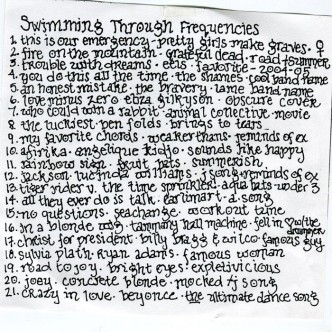 Swimming Through Frequencies
1. this is our emergency · pretty girls make graves · ♀
2. fire on the mountain · grateful dead · road+summer
3. trouble with dreams · eels · favorite · 2004-05
4. you do this all the time · the shames · cool band name
5. an honest mistake · the bravery · lame band name
6. love minus zero · eliza gilkyson · obscure cover
7. who could win a rabbit · animal collective · movie
8. the luckiest · ben folds · brings to tears
9. my favorite chords · weakerthans · reminds of ex
10. afirika · angelique kidjo · sounds like happy
11. rainbow sign · fruit bats · summerish
12. jackson · lucinda williams · j song · reminds of ex
13. tiger rider v. the time sprinkler · aqua bats · under 3
14. all they ever do is talk · earlimart · a song
15. no questions · seachange · workout time
16. in a blonde wig · tammany hall machine · fell in ♡ w/the drummer
17. christ for president · billy bragg & wilco · famous guy
18. sylvia plath · ryan adams · famous woman
19. road to joy · bright eyes · expletivicious
20. joey · concrete blonde · mocked rj song
21. crazy in love · beyonce · the ultimate dance song